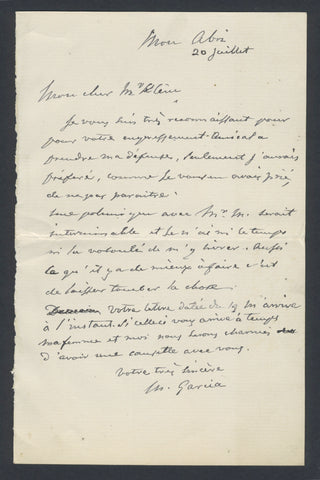 Mon Abri
20 juillet
Mon cher Mr Klein
Je vous suis très reconnaissant pour
pour votre empressement amical à
prendre ma défense, seulement j'aurais
préféré, comme je vous en avais prié,
de ne pas paraître:
une polémique avec Mr. M. serait
interminable et je n'ai ni le temps
ni la volonté de m'y livrer. Aussi
ce qu'il y a de mieux à faire c'est
de laisser tomber la chose.
Votre lettre datée de 19 m'arrive
à l'instant. Si celle ci vous arrive à temps
ma femme et moi nous serons charmés
d'avoir une causette avec vous.
Votre très sincère
M. Garcia